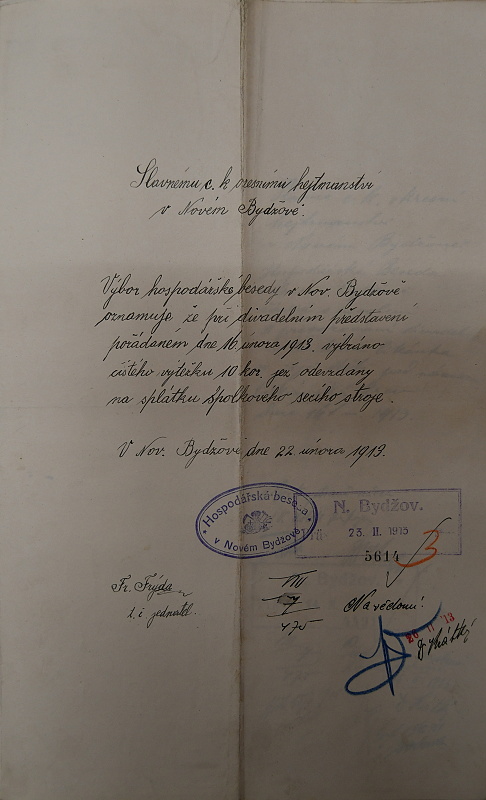 Slavnému c. k. okresnímu hejtmanství
v Novém Bydžově.
Výbor hospodářské besedy v Nov. Bydžově
oznamuje, že při divadelním představení
pořádaném dne 16. února 1913. vybráno
čistého výtěžku 10 kor. jez odevzdany
na splátku spolkového secího stroje.
V Nov. Bydžově dne 22. února 1913.
Hospodářská bese..a
v Novém Bydžově
N. Bydžov.
23. II. 1913
5614
Fr. Frýda
t. č. jednatel.
VII
7
475
Na vědomí!
26 II 13